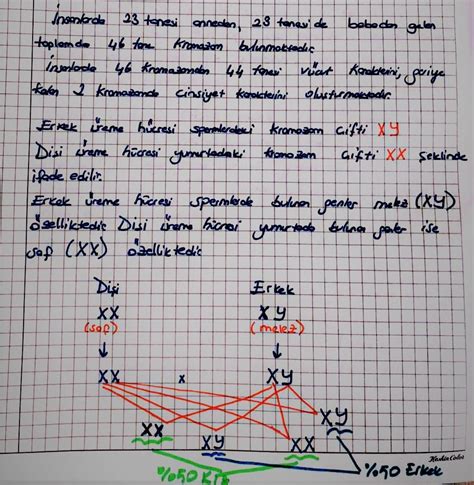 İnsanlarda 23 tanesi anneden, 23 tanesi de babadan gelen
toplamda 46 tane kromozom bulunmaktadır.
İnsanlarda 46 kromozomdan 44 tanesi vücut karakterini, geriye
kalan 2 kromozomda cinsiyet karakterini oluşturmaktadır.
Erkek üreme hücresi spermlerdeki kromozom çifti XY
Dişi üreme hücresi yumurtadaki kromozom çifti XX şeklinde
ifade edilir.
Erkek üreme hücresi spermlerde bulunan genler melez (XY)
özelliktedir. Dişi üreme hücresi yumurtada bulunan genler ise
saf (XX) özelliktedir
Dişi Erkek
XX XY
(saf) (melez)
XX x XY
XX XY XX XY
%50 Kız %50 Erkek
KadirColor